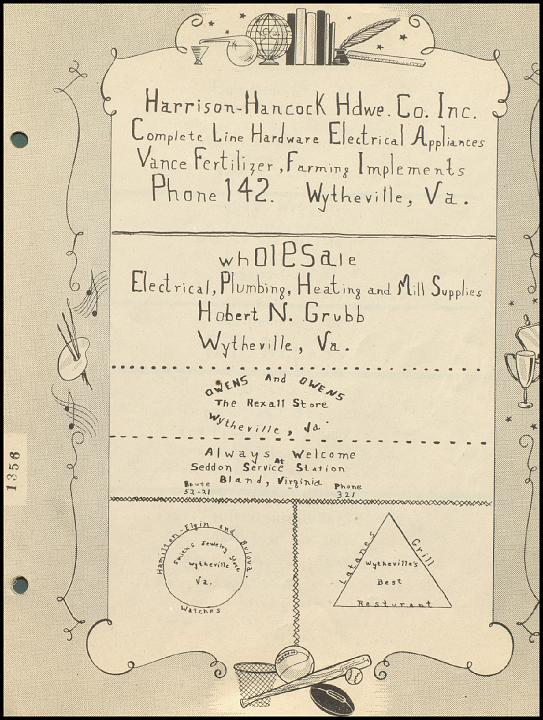 Harrison-Hancock Hdwe. Co. Inc.
Complete Line Hardware Electrical Appliances
Vance Fertilizer, Farming Implements
Phone 142. Wytheville, Va.
wholesale
Electrical, Plumbing, Heating and Mill Supplies
Hobert N. Grubb
Wytheville, Va.
Owens And Owens
The Rexall Store
Wytheville, Va.
Always Welcome
At
Seddon Service Station
Bland, Virginia
Route
52-21
Phone
321
1356
Hamilton-Elgin and Bulova.
Smith's Jewelry Store
Wytheville
Va.
Watches
Latanes Grill
Wytheville's
Best
Resturant